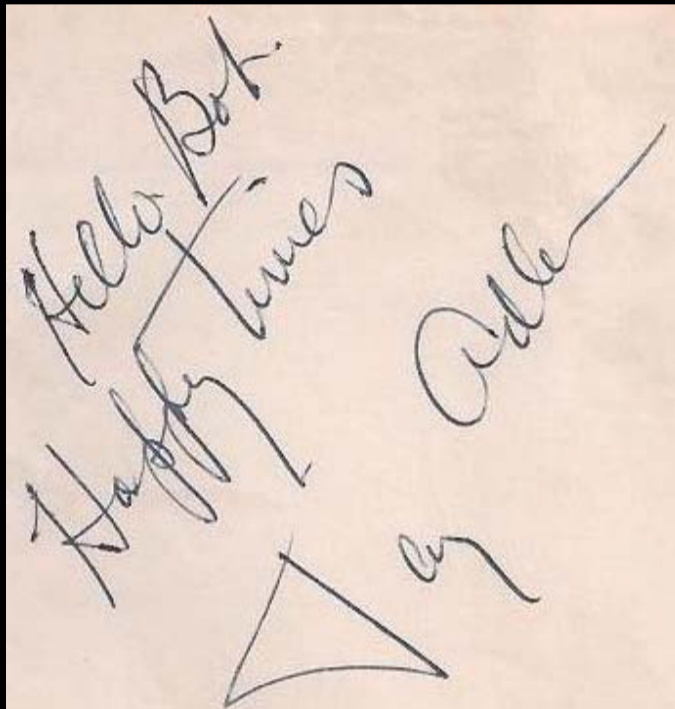 Hello Bob.
Happy Times
Jay Adler